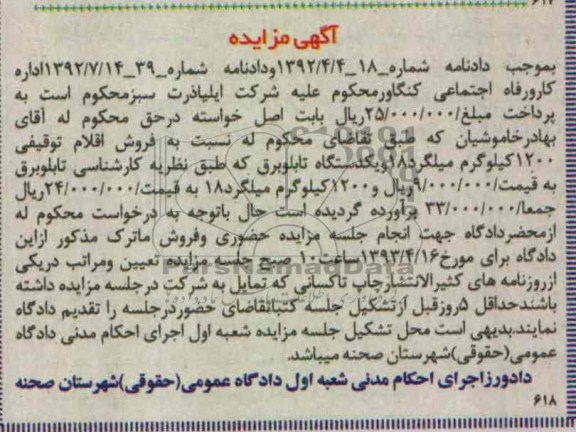 ۶۱۷
آگهی مزایده
بموجب دادنامه شماره_۱۸_۱۳۹۲/۴/۴ودادنامه شماره_۳۹_۱۳۹۲/۷/۱۴اداره
کارورفاه اجتماعی کنگاورمحکوم علیه شرکت ایلیاذرت سبزمحکوم است به
پرداخت مبلغ/۲۵/۰۰۰/۰۰۰ریال بابت اصل خواسته درحق محکوم له آقای
بهادرخاموشیان که طبق تقاضای محکوم له نسبت به فروش اقلام توقیفی
۱۲۰۰کیلوگرم میلگرد۱۸ویکدستگاه تابلوبرق که طبق نظریه کارشناسی تابلوبرق
به قیمت/۹/۰۰۰/۰۰۰ریال و۱۲۰۰کیلوگرم میلگرد۱۸ به قیمت/۲۴/۰۰۰/۰۰۰ریال
جمعا/۳۳/۰۰۰/۰۰۰ برآورده گردیده است حال باتوجه به درخواست محکوم له
ازمحضردادگاه جهت انجام جلسه مزایده حضوری وفروش ماترک مذکور ازاین
دادگاه برای مورخ۱۳۹۳/۴/۱۶ساعت۱۰ صبح جلسه مزایده تعیین ومراتب دریکی
ازروزنامه های کثیرالانتشارچاپ تاکسانی که تمایل به شرکت درجلسه مزایده داشته
باشندحداقل ۵روزقبل ازتشکیل جلسه کتباتقاضای حضوردرجلسه را تقدیم دادگاه
نمایند.بدیهی است محل تشکیل جلسه مزایده شعبه اول اجرای احکام مدنی دادگاه
عمومی(حقوقی)شهرستان صحنه میباشد.
دادورزاجرای احکام مدنی شعبه اول دادگاه عمومی(حقوقی)شهرستان صحنه
۶۱۸
ParsNamadData